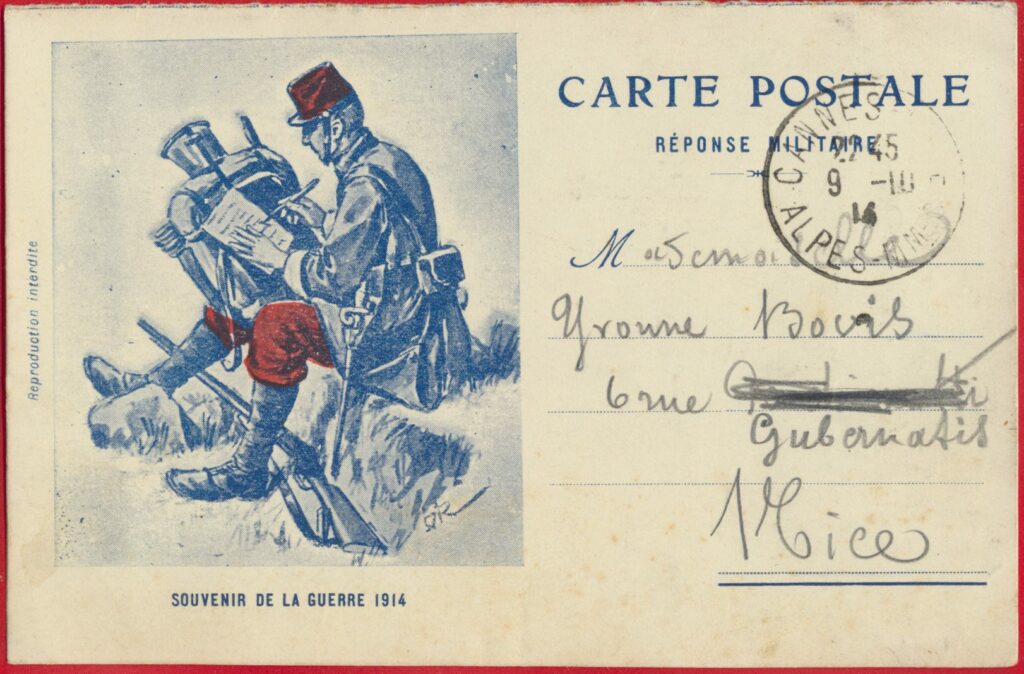 CARTE POSTALE
RÉPONSE MILITAIRE
CANNES
22 45
9 -10
14
ALPES-MMES
Mademoiselle
Yvonne Bovis
6 rue
Gubernatis
Nice
Reproduction interdite
SOUVENIR DE LA GUERRE 1914